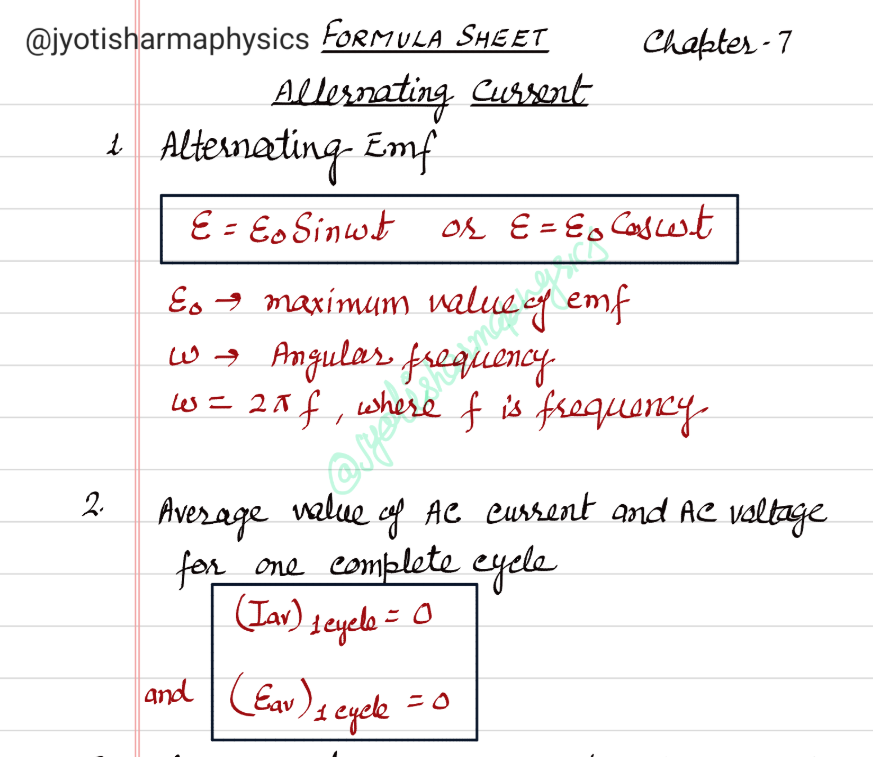 @jyotisharmaphysics FORMULA SHEET Chapter-7
Alternating Current
1 Alternating Emf
ε = ε₀ Sinωt or ε = ε₀ Cosωt
ε₀ → maximum value of emf
ω → Angular frequency
ω = 2πf, where f is frequency
@jyotisharmaphysics
2. Average value of AC current and AC voltage
for one complete cycle
(Iav) 1 cycle = 0
and (εav) 1 cycle = 0